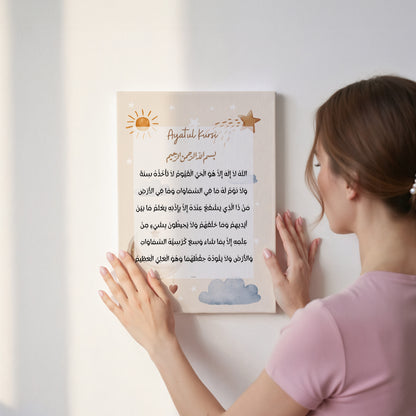 Ayatul Kursi
بسم الله الرحمن الرحيم
الله لا إله إلا هو الحي القيوم لا تأخذه سنة
ولا نوم له ما في السماوات وما في الأرض
من ذا الذي يشفع عنده إلا بإذنه يعلم ما بين
أيديهم وما خلفهم ولا يحيطون بشيء من
علمه إلا بما شاء وسع كرسيه السماوات
والأرض ولا يئوده حفظهما وهو العلي العظيم